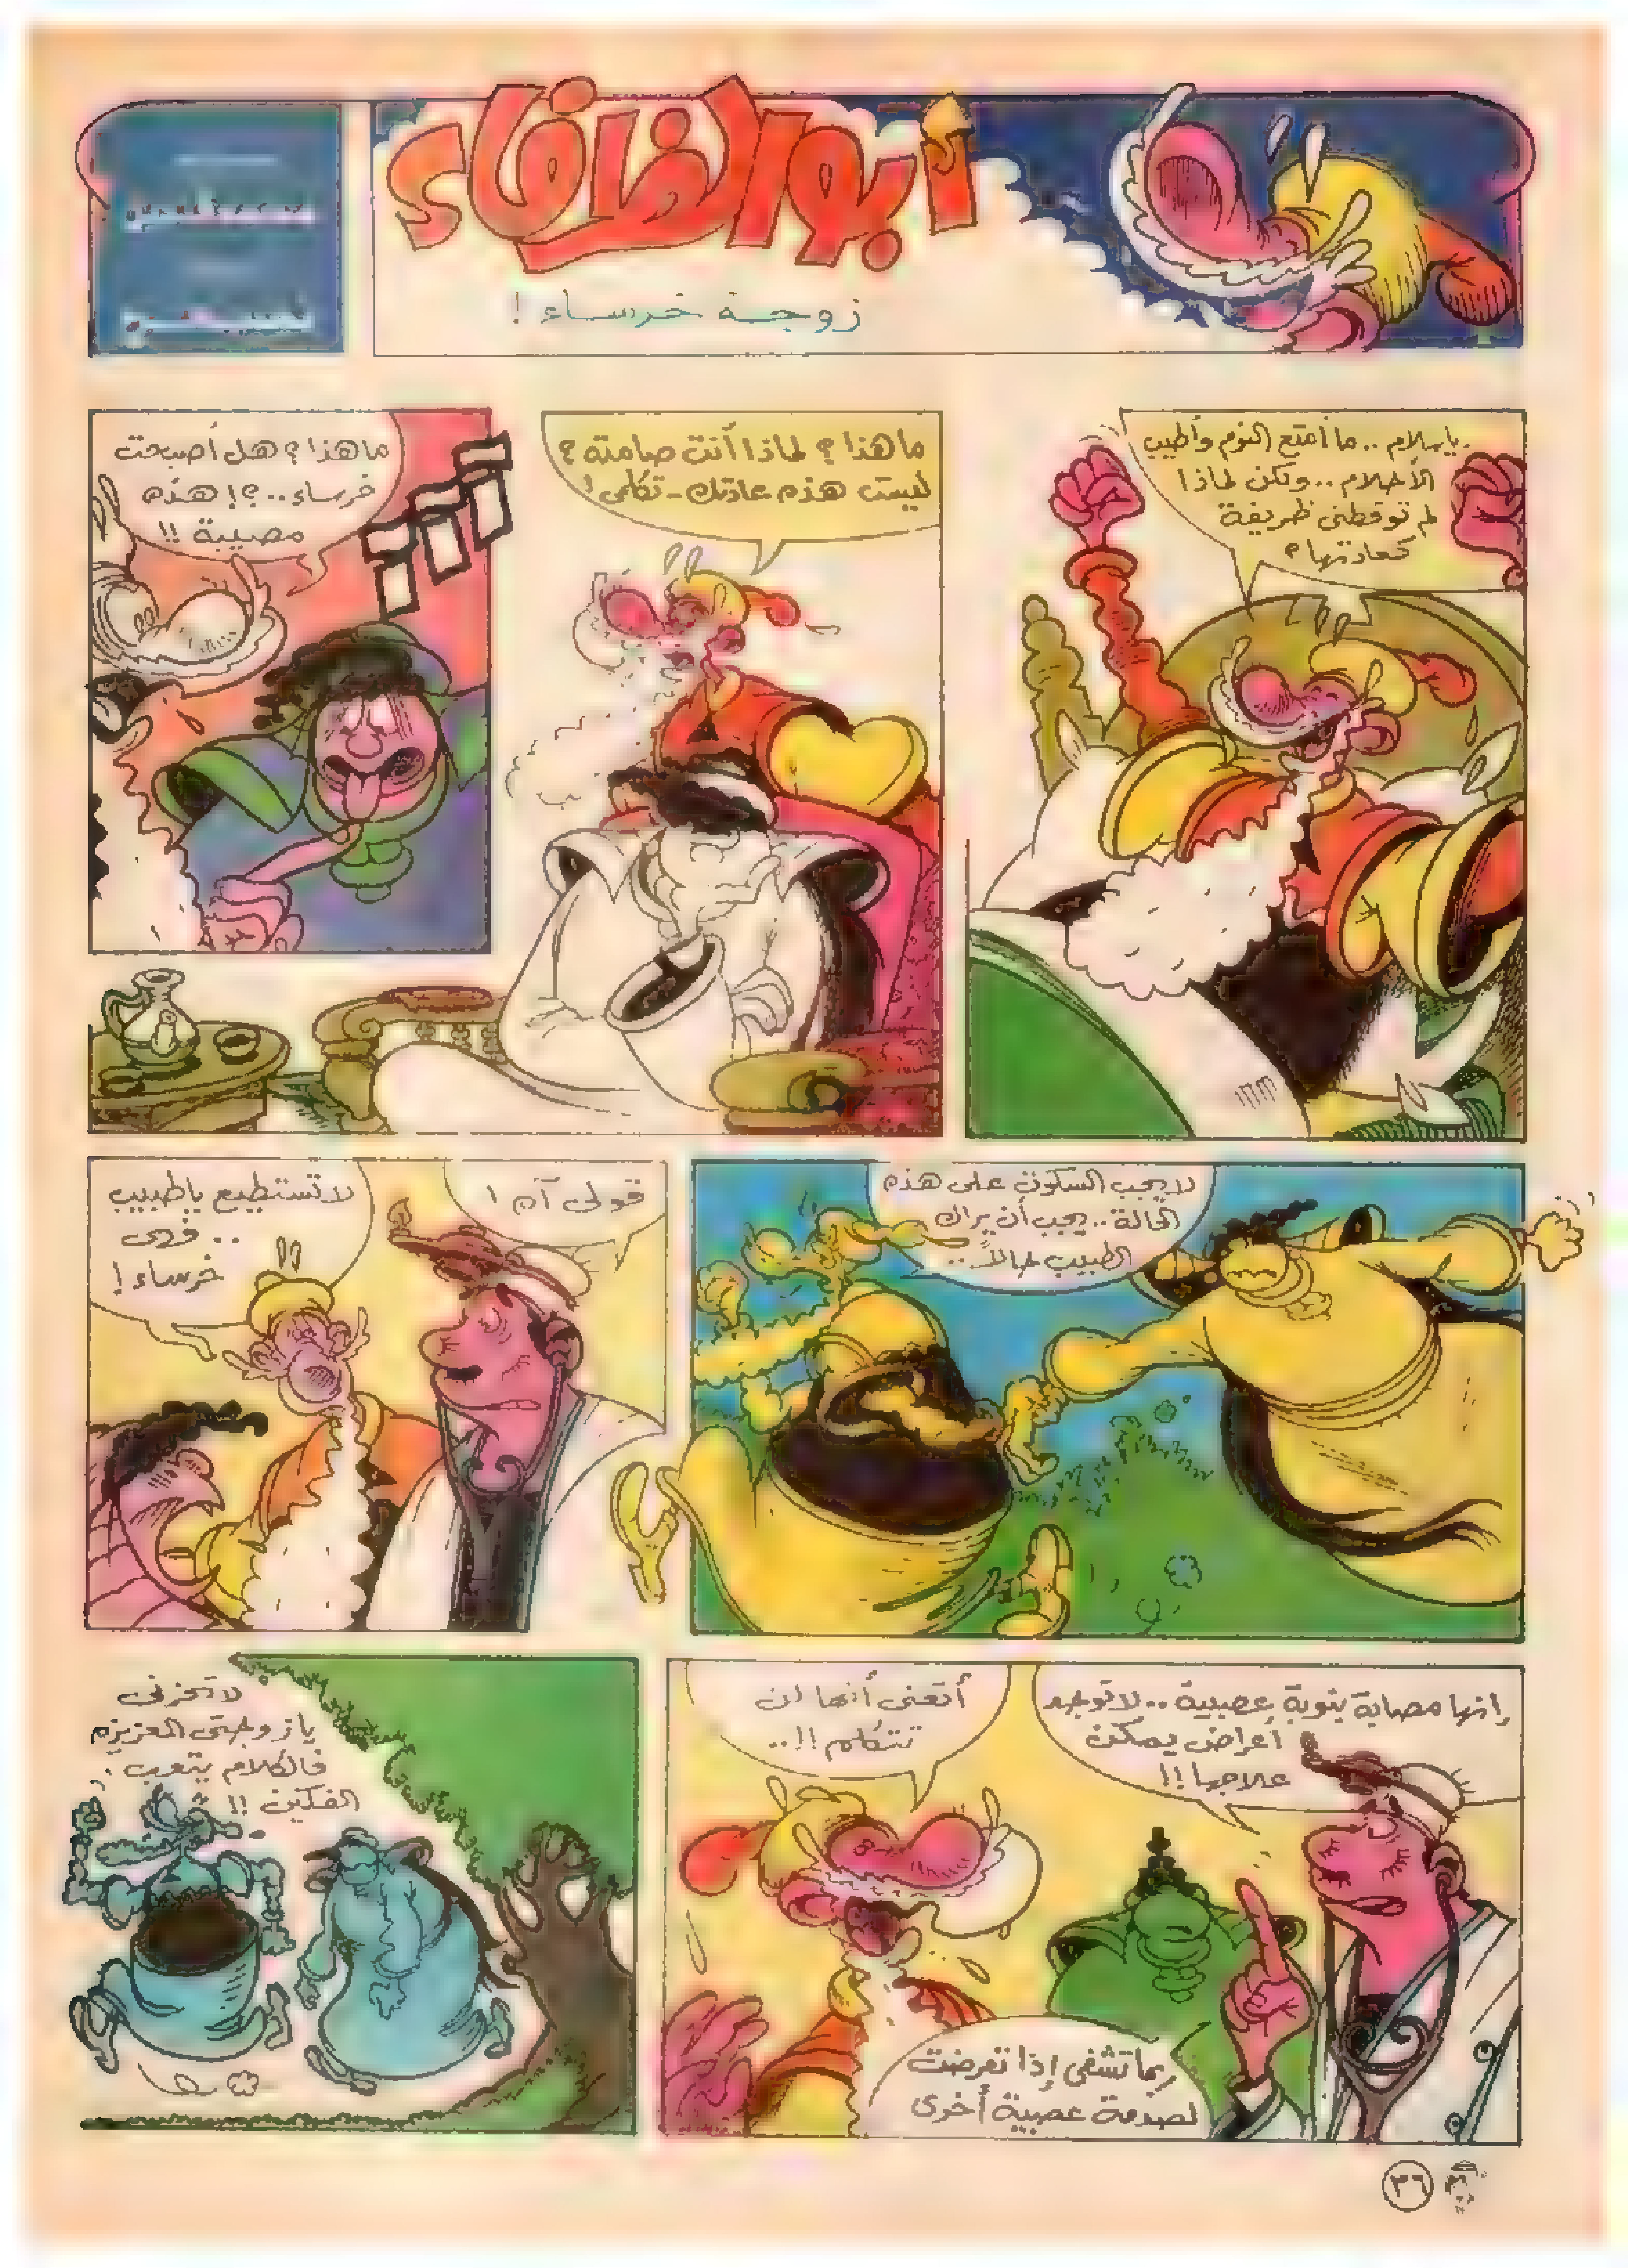 أبو الظرفاء
زوجة خرساء!
ياسلام.. ما أمتع النوم وأطيب
الأحلام.. ولكن لماذا
لم توقظني ظريفة
كعادتها؟
ما هذا؟ لماذا أنت صامتة؟
ليست هذه عادتك - تكلمى!
ما هذا؟ هل أصبحت
خرساء..؟! هذه
مصيبة!!
لا يجب السكوت على هذه
الحالة.. يجب أن يراك
الطبيب حالاً..
قولى آه!
لا تستطيع يا طبيب
.. فهى
خرساء!
إنها مصابة بنوبة عصبية.. لا توجد
أعراض يمكن
علاجها!!
أتعنى أنها لن
تتكلم!!..
ربما تشفى إذا تعرضت
لصدمة عصبية أخرى
لا تحزنى
يا زوجتى العزيزة
فالكلام يتعب
الفكين!!
٣٦